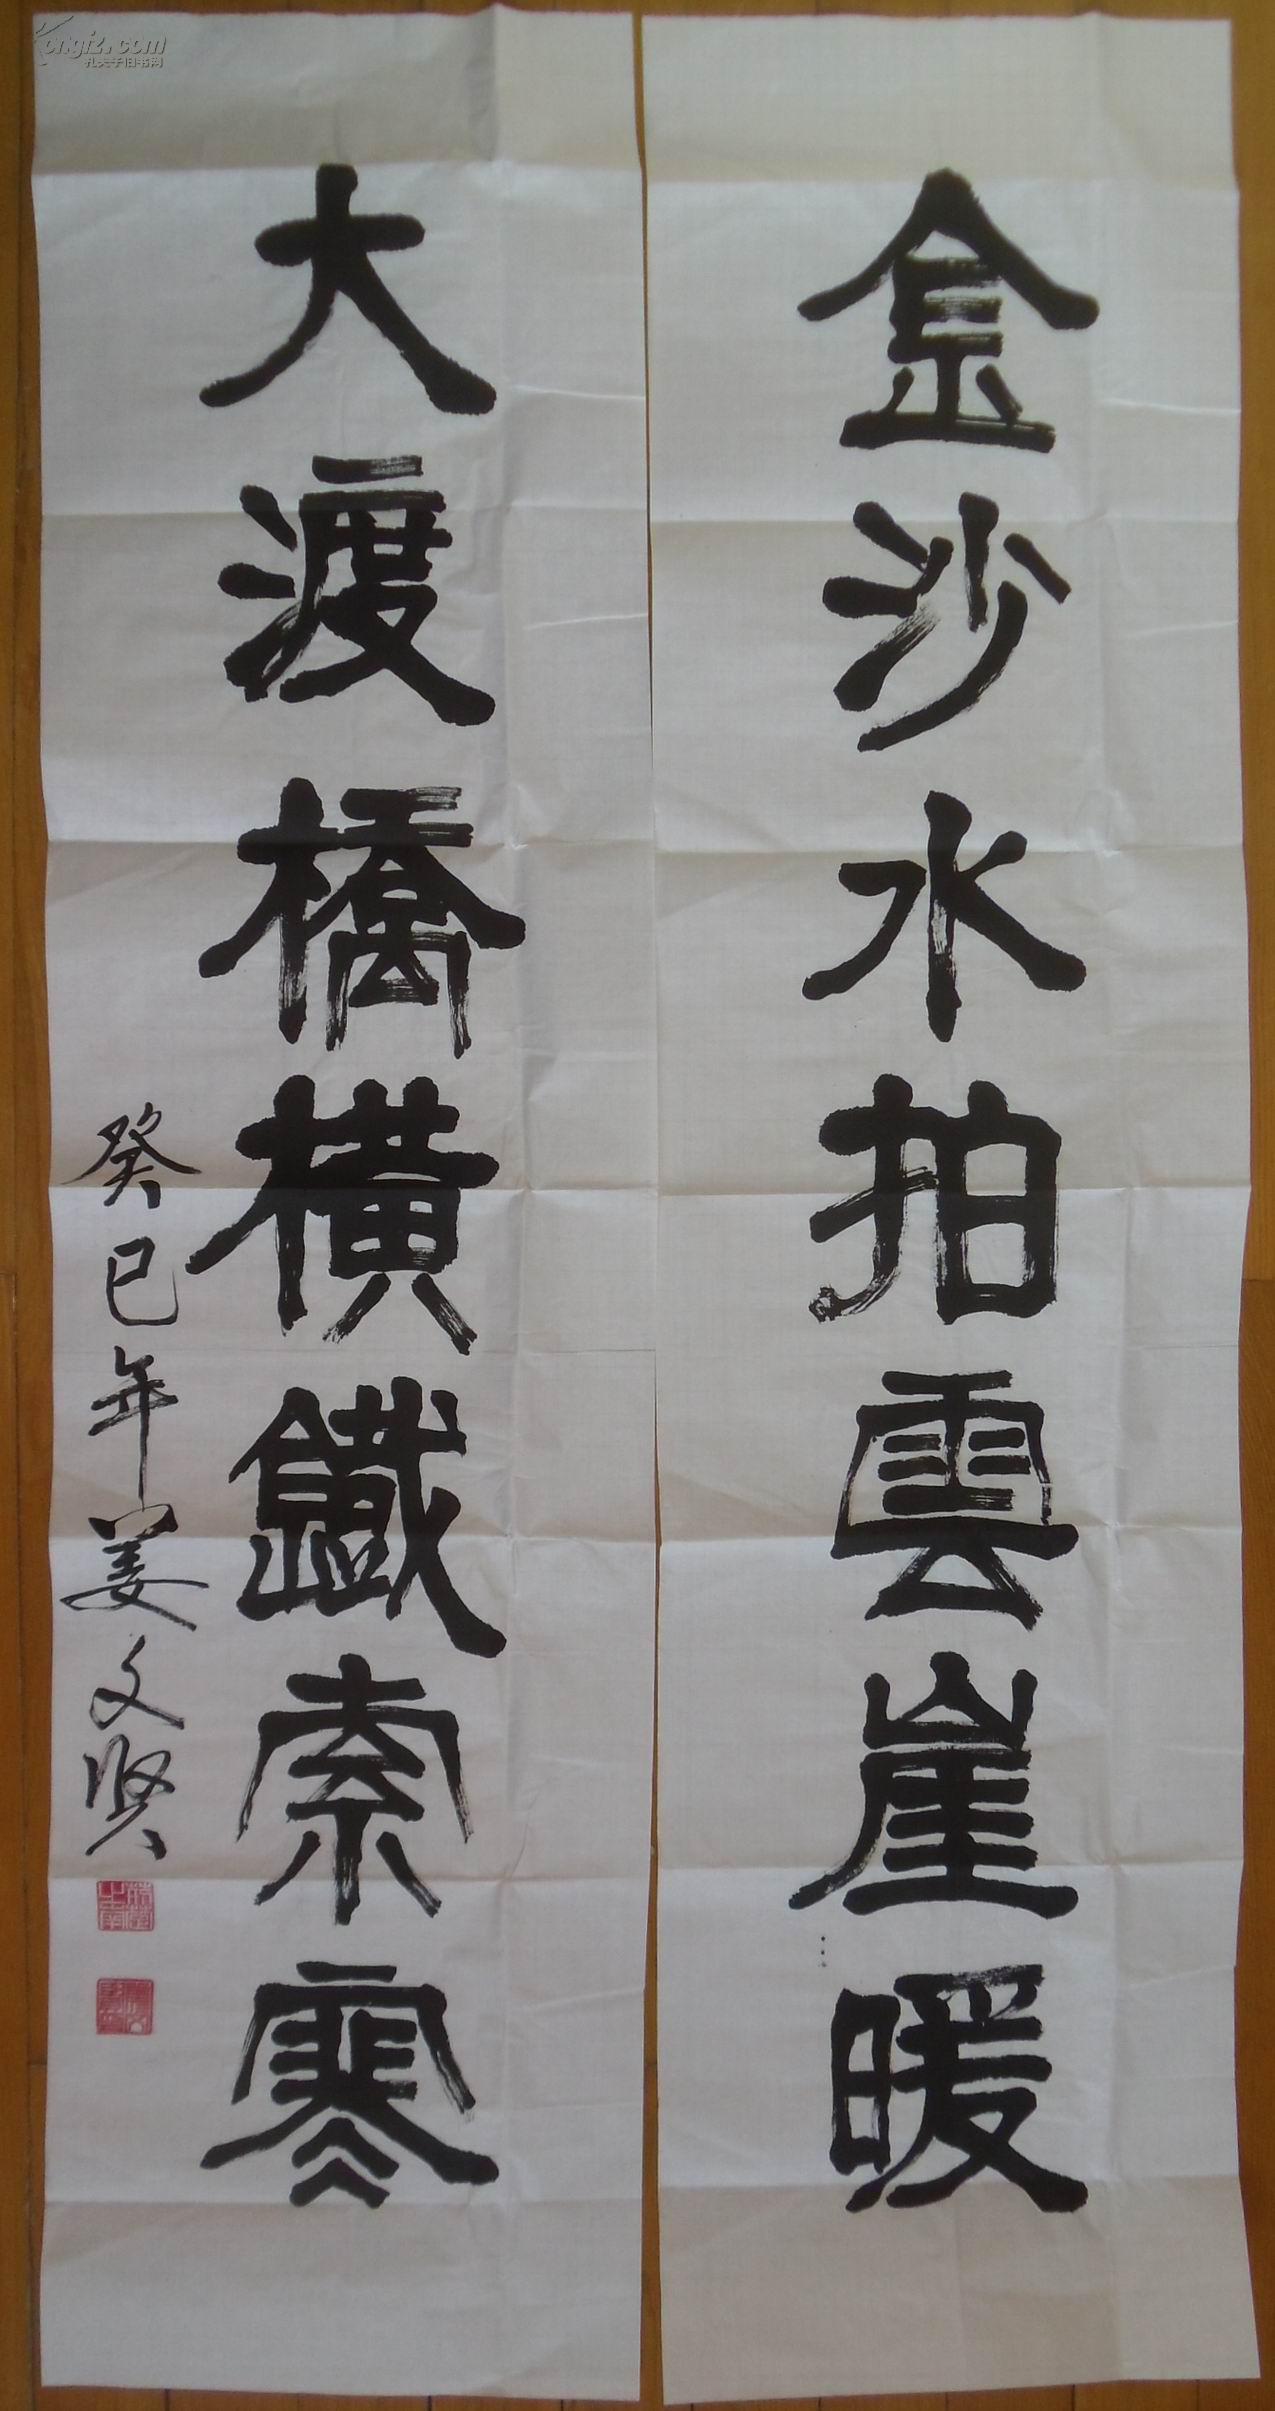 金沙水拍雲崖暖
大渡橋橫鐵索寒
癸巳年姜文贤
ongfz.com
孔夫子旧书网